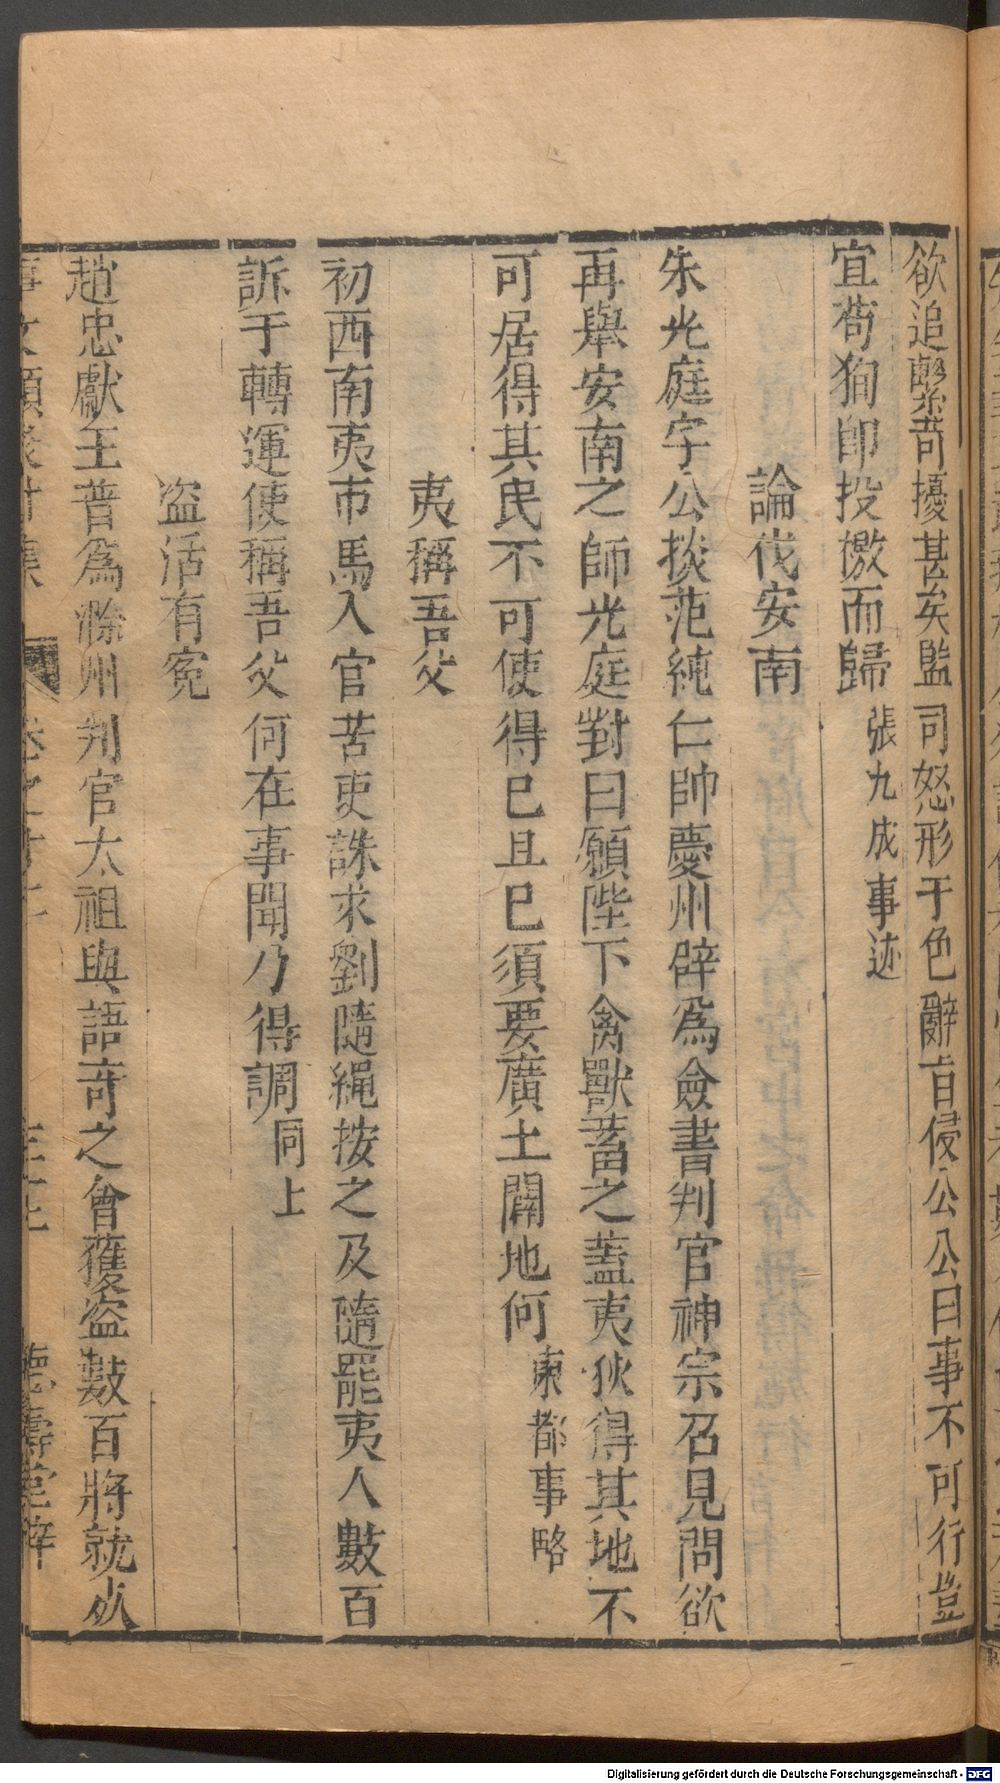 欲追繫苛擾甚矣監司怒形于色辭旨侵公公曰事不可行豈
宜苟狥卽投檄而歸張九成事迹
論伐安南
朱光庭字公掞范純仁帥慶州辟爲僉書判官神宗召見問欲
再舉安南之師光庭對曰願陛下禽獸蓄之蓋夷狄得其地不
可居得其民不可使得已且已須要廣土闢地何東都事略
夷稱吾父
初西南夷市馬入官苦吏誅求劉隨繩按之及隨罷夷人數百
訴于轉運使稱吾父何在事聞乃得調同上
盗活有寃
趙忠獻王普爲滁州判官太祖與語奇之會獲盗數百將就死
Digitalisierung gefördert durch die Deutsche Forschungsgemeinschaft - DFG